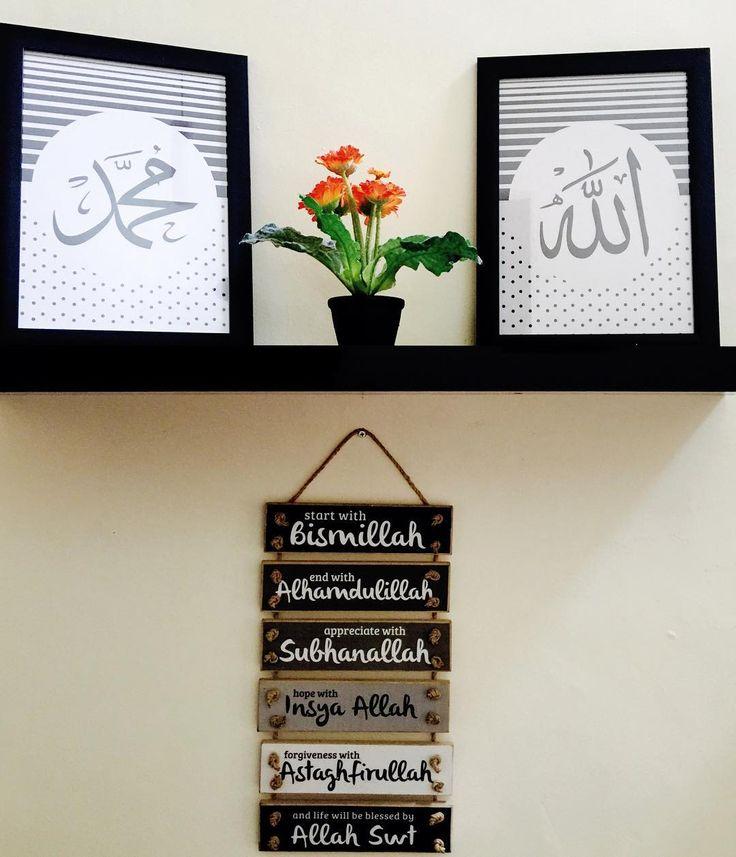 محمد
الله
start with
Bismillah
end with
Alhamdulillah
appreciate with
Subhanallah
hope with
Insya Allah
forgiveness with
Astaghfirullah
and life will be blessed by
Allah Swt